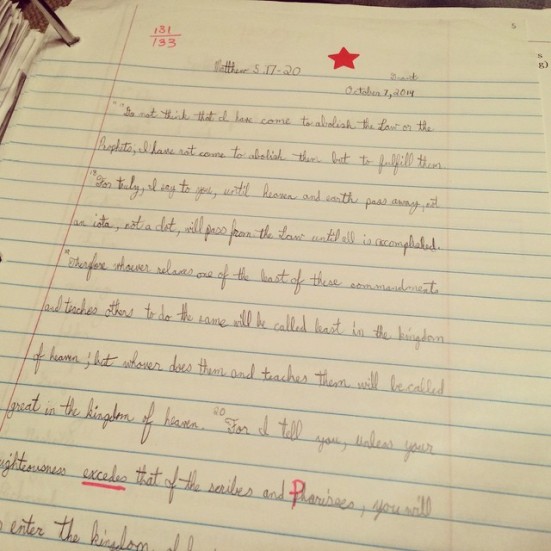 131
133
5
s
g)
Matthew 5:17-20
October 7, 2014
"17 Do not think that I have come to abolish the Law or the
Prophets; I have not come to abolish them but to fulfill them
18 For truly, I say to you, until heaven and earth pass away, not
an iota, not a dot, will pass from the Law until all is accomplished.
19 Therefore whoever relaxes one of the least of these commandments
and teaches others to do the same will be called least in the kingdom
of heaven; but whoever does them and teaches them will be called
great in the kingdom of heaven. 20 For I tell you, unless your
righteousness excedes that of the scribes and Pharisees, you will
enter the kingdom